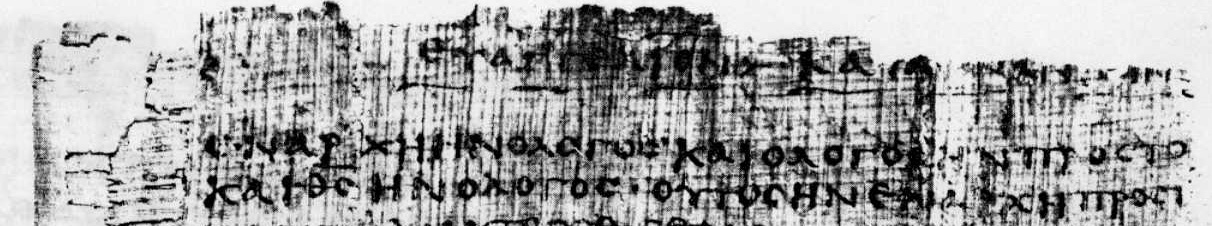 ΕΥΑΓΓΕΛΙΟΝ ΚΑ
ΕΝΑΡΧΗΗΝΟΛΟΓΟϹ·ΚΑΙΟΛΟΓΟϹΗΝΠΡΟϹΤΟ
ΚΑΙΘ̅Ϲ̅ΗΝΟΛΟΓΟϹ·ΟΥΤΟϹΗΝΕΝΑΡΧΗΠΡΟϹΤ